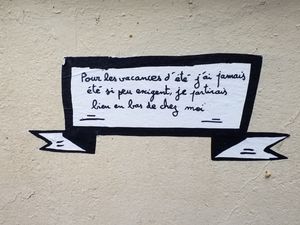 Pour les vacances d'été j'ai jamais
été si peu exigent, je partirais
bien en bas de chez moi